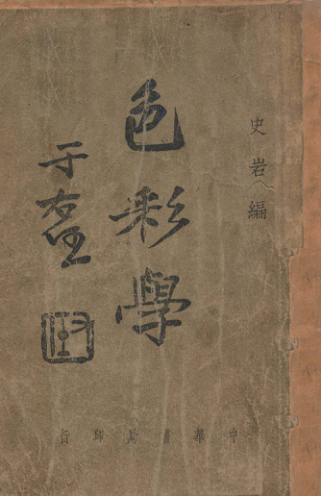 史岩編
色彩學
于右任
中華書局印行